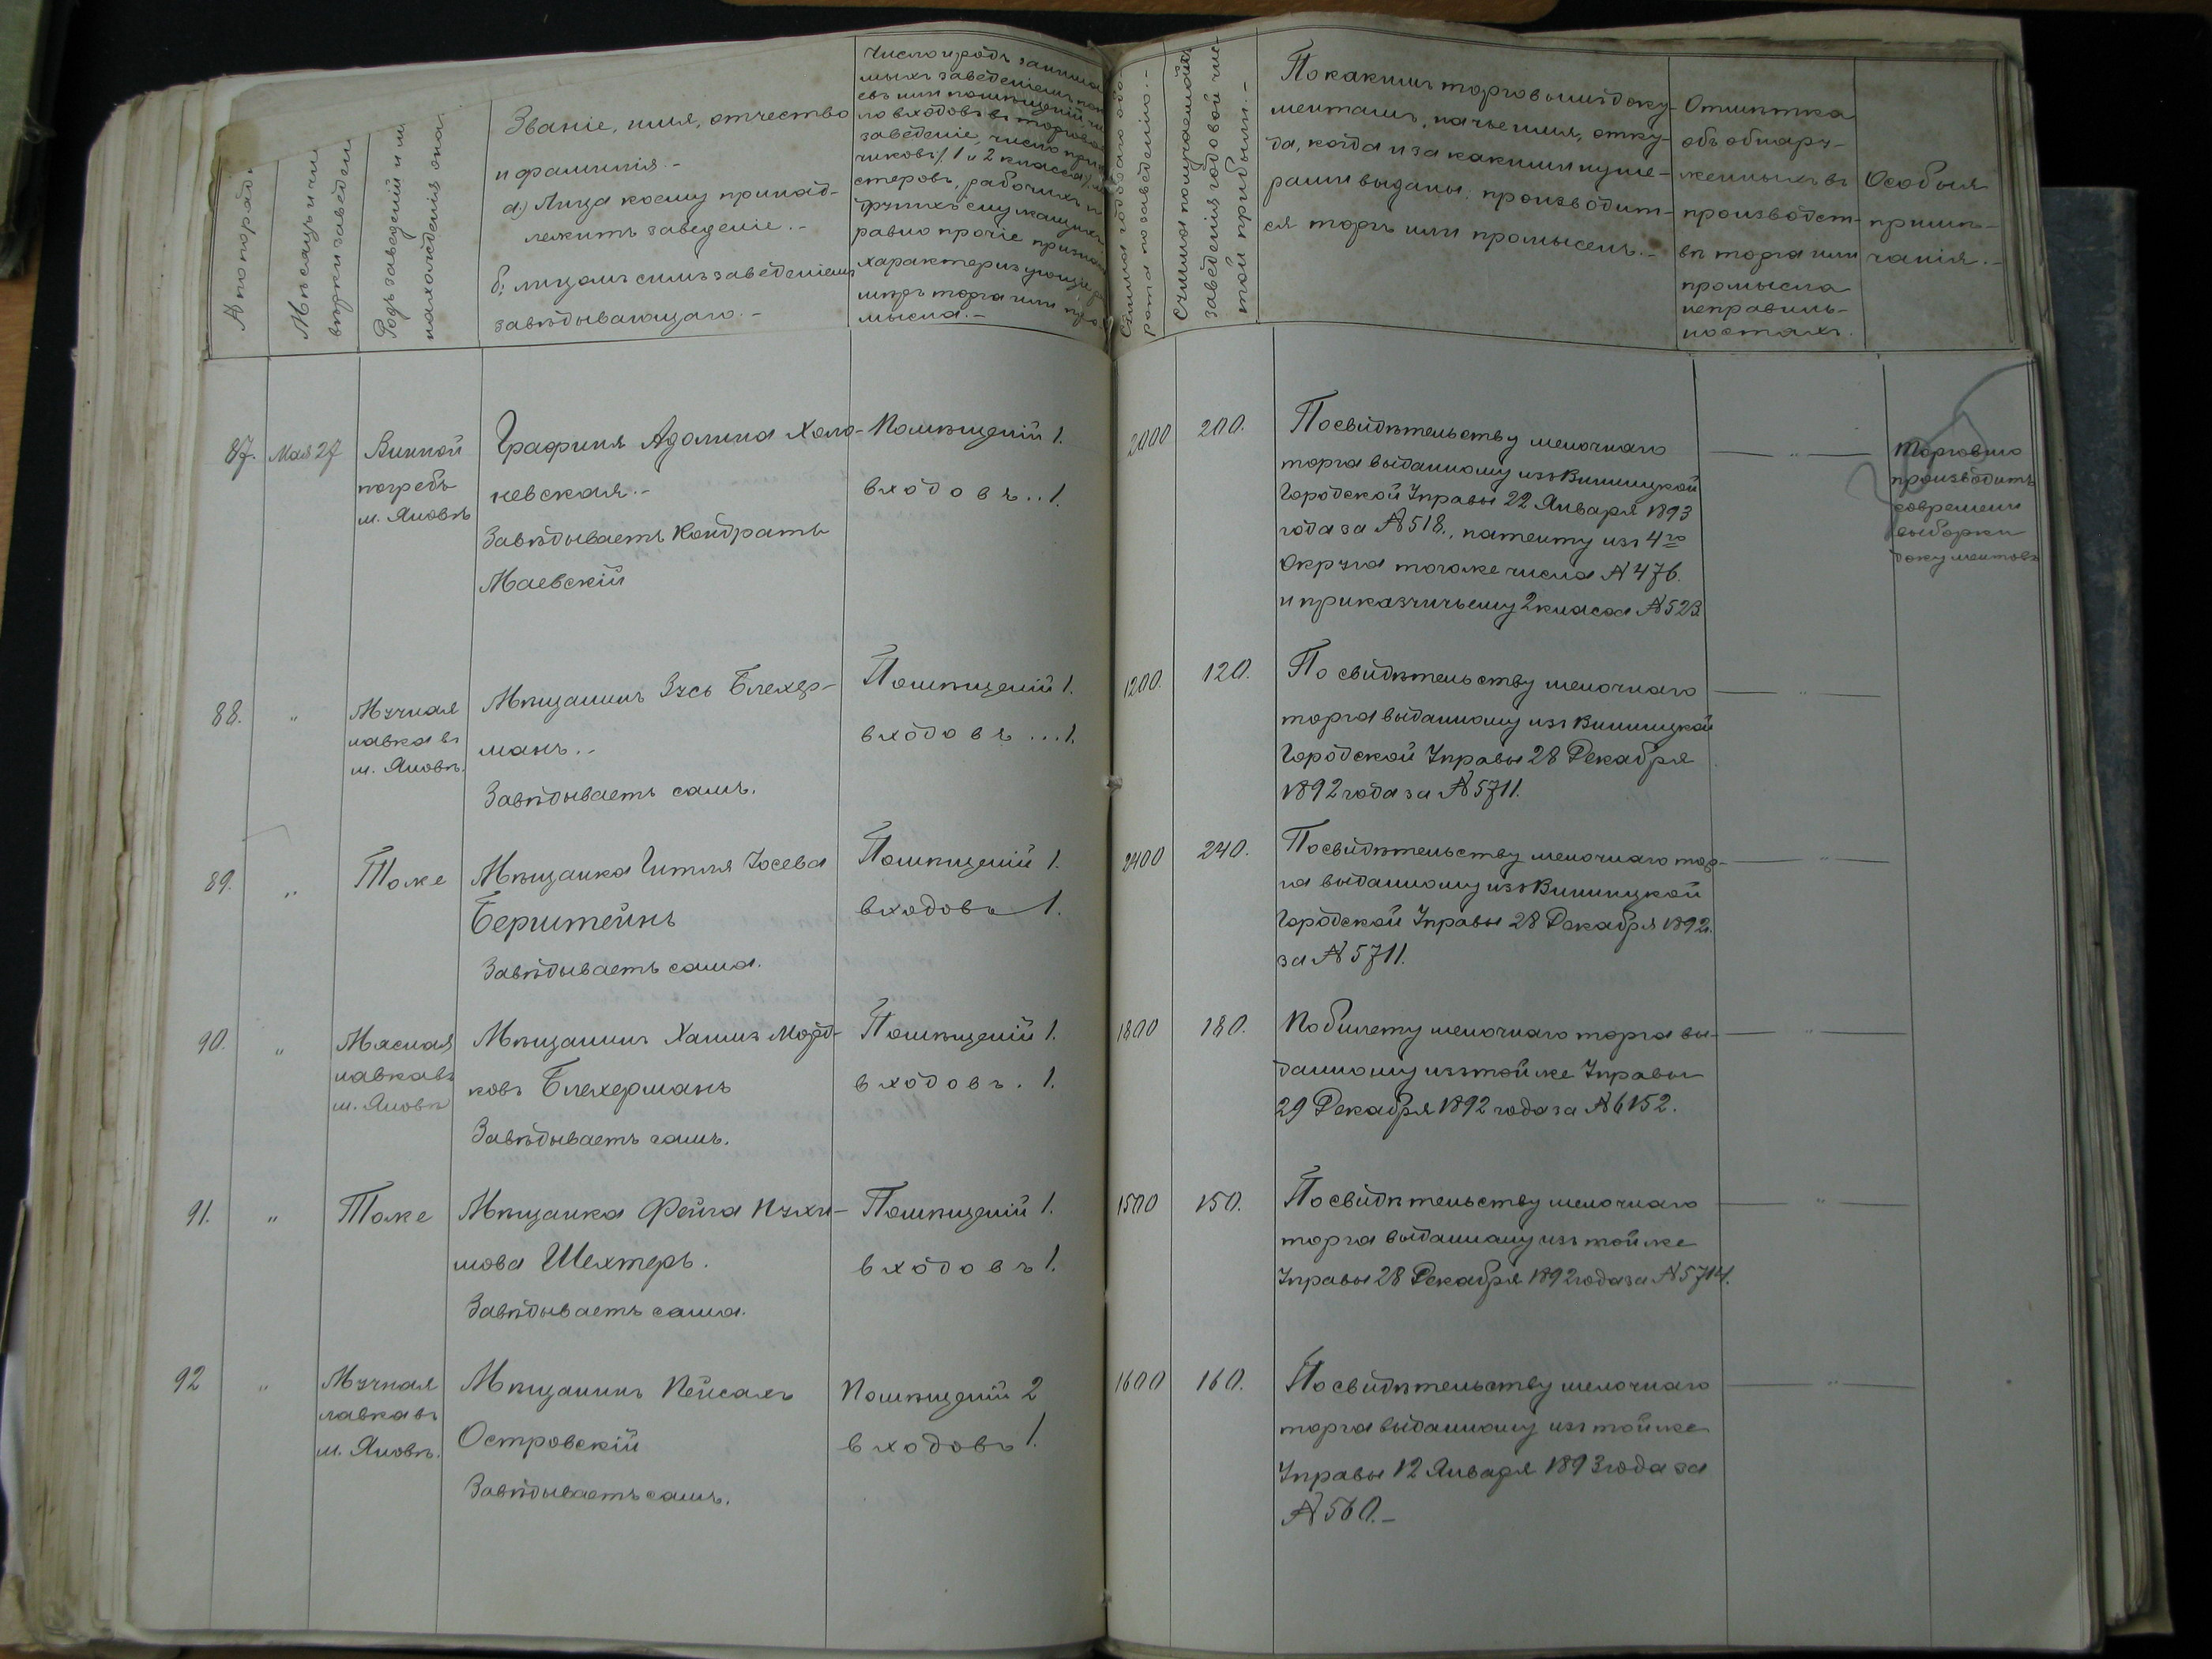 № по поряд
Мѣсяцъ и чи
вѣрки заведен
Родъ заведеній и м
нахожденія она
Званіе, имя, отчество
и фамилія.-
а) Лица коему принад-
лежитъ заведеніе.-
б, лицомъ симъ заведеніемъ
завѣдывающаго.-
Число и родъ занима
мыхъ заведеніемъ
евъ или помѣщеній
ло входовъ въ торгов
заведеніе, число при
чиковъ/1 и 2 класса/
стеровъ, рабочихъ и
другихъ служащихъ
равно прочіе призна
характеризующіе
мѣръ торга или про
мысла.-
Сумма годоваго обо-
рота по заведенію.-
Сумма получаемой
заведенія годовой чис-
той прибыли.-
По какимъ торговымъ доку-
ментамъ, на чье имя, отку-
да, когда и за какими нуме-
рами выданы: производит-
ся торгъ или промыселъ.-
Отмѣтка
объ обнару-
женныхъ въ
производст-
вѣ торга или
промысла
неправиль-
ностяхъ.
Особыя
примѣ-
чанія.-
87. Мая 27 Винной
погребъ
м. Яновѣ
Графиня Адолина Холо-
невская.-
Завѣдываетъ Кондратъ
Маевскій
Помѣщеній 1.
входовъ..1.
2000 200.
По свидѣтельству мелочнаго
торга выданному изъ Винницкой
Городской Управы 22 Января 1893
года за №518., патенту изъ 4го
Округа того же числа №476.
и приказчичьему 2 класса №523.
— „ —
Торговлю
производитъ
со времени
выборки
документовъ
88. „ Мучная
лавка въ
м. Яновѣ.
Мѣщанинъ Зусь Блехер-
манъ.-
Завѣдываетъ самъ.
Помѣщеній 1.
входовъ...1.
1200. 120.
По свидѣтельству мелочнаго
торга выданному изъ Винницкой
Городской Управы 28 Декабря
1892 года за №5711.
— „ —
89. „ Тоже
Мѣщанка Гитля Іосева
Берштейнъ
Завѣдываетъ сама.
Помѣщеній 1.
входовъ 1.
2400 240.
По свидѣтельству мелочнаго тор-
га выданному изъ Винницкой
Городской Управы 28 Декабря 1892г.
за №5711.
— „ —
90. „ Мясная
лавка въ
м. Яновѣ
Мѣщанинъ Хаимъ Морд-
ковъ Блехерманъ
Завѣдываетъ самъ.
Помѣщеній 1.
входовъ. 1.
1800 180.
По билету мелочнаго торга вы-
данному изъ той же Управы
29 Декабря 1892 года за №6152.
— „ —
91. „ Тоже
Мѣщанка Фейга Нухи-
мова Шехтеръ.
Завѣдываетъ сама.
Помѣщеній 1.
входовъ 1.
1500 150.
По свидѣтельству мелочнаго
торга выданному изъ той же
Управы 28 Декабря 1892 года за №5714.
— „ —
92 „ Мучная
лавка въ
м. Яновѣ.
Мѣщанинъ Пейсахъ
Островскій
Завѣдываетъ самъ.
Помѣщеній 2
входовъ 1.
1600 160.
По свидѣтельству мелочнаго
торга выданному изъ той же
Управы 12 Января 1893 года за
№560.-
— „ —